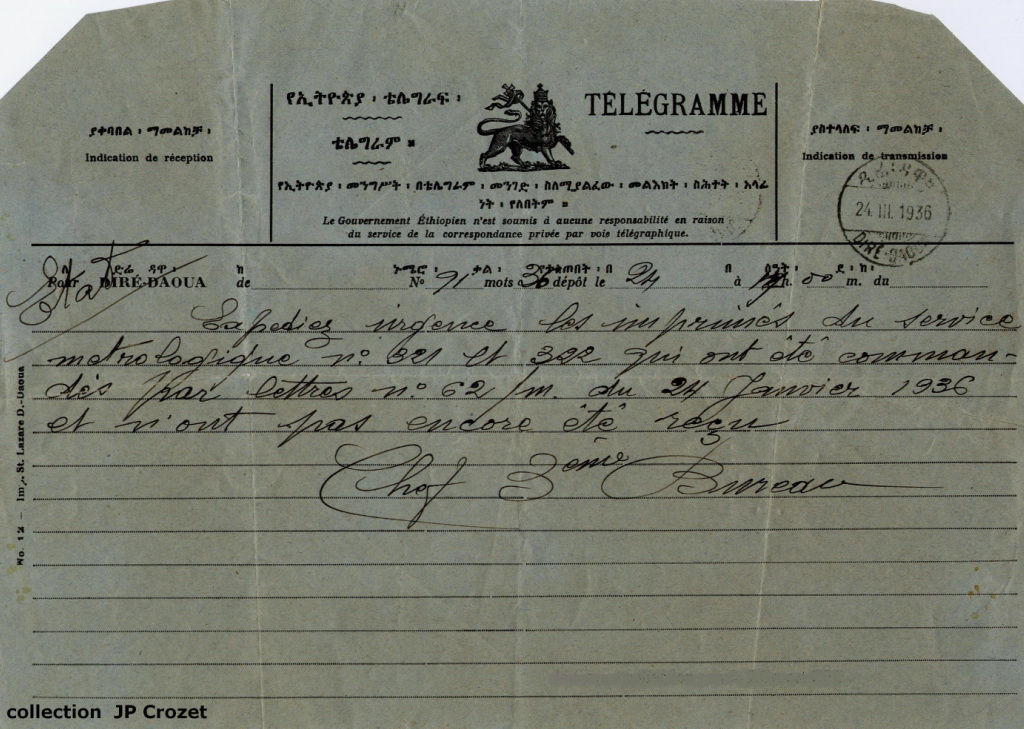 የኢትዮጵያ ፡ ቴሌግራፍ ፡
ቴሌግራም ።
TÉLÉGRAMME
ያቀባበል ፡ ማመልከቻ ፡
Indication de réception
ያስተላለፍ ፡ ማመልከቻ ፡
Indication de transmission
የኢትዮጵያ ፡ መንግሥት ፡ በቴሌግራም ፡ መንገድ ፡ ስለሚያልፈው ፡ መልእክት ፡ ስሕተት ፡ አላፊ
ነት ፡ የለበትም ።
Le Gouvernement Éthiopien n'est soumis à aucune responsabilité en raison
du service de la correspondance privée par voie télégraphique.
24. III. 1936
DIRÉ-DAOUA
Etat
ድሬ ፡ ዳዋ ፡ ከ ኑሜሮ ፡ ቃል ፡ በ በ
Pour DIRÉ-DAOUA de No 91 mots 36 dépôt le 24 à h. 00 m. du
Expediez urgence les imprimés du service
métrologique n° 321 et 322 qui ont été comman-
dés par lettres n° 62/m. du 24 Janvier 1936
et n'ont pas encore été reçu
Chef 3ème Bureau
No. 12 — Imp. St. Lazare D.-Daoua
collection JP Crozet